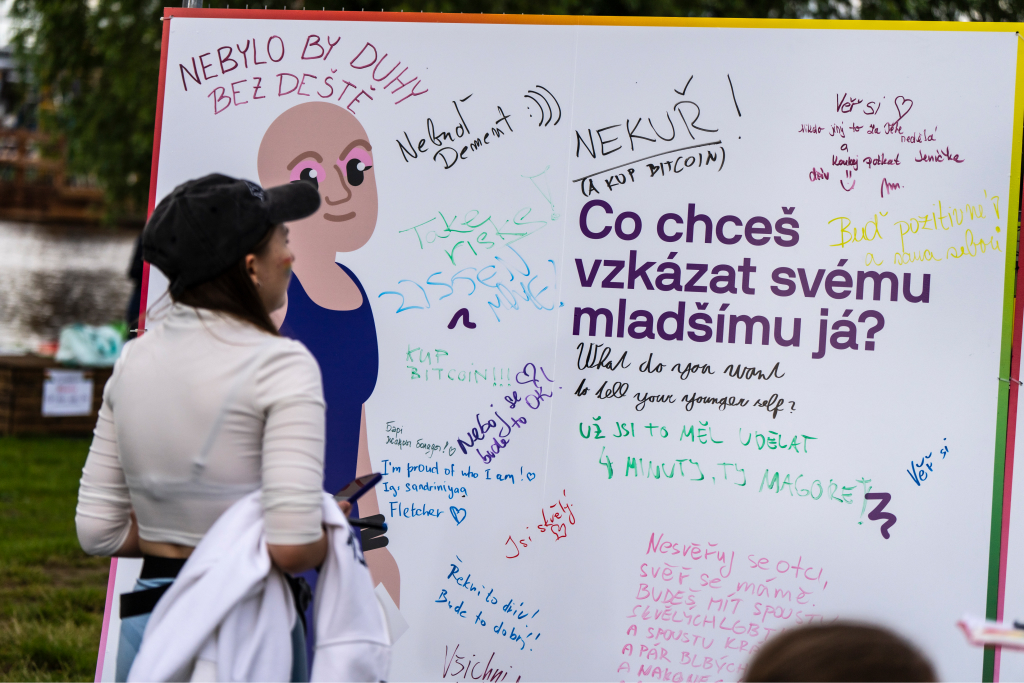 NEBYLO BY DUHY
BEZ DEŠTĚ
Nebuď
Dement :)))
NEKUŘ!
(A KUP BITCOIN)
Věř si ♡
nikdo jiný to za tebe
neudělá
a
koukej potkat Jeníčka
dřív
Buď pozitivně
a sama sebou
Take
risks!
Co chceš
vzkázat svému
mladšímu já?
What do you want
to tell your younger self?
KUP
BITCOIN!!!
Neboj se ♡!
bude to OK!
UŽ JSI TO MĚL UDĚLAT
4 MINUTY, TY MAGORE!
Věř si
I'm proud of who I am! ♡
Ig: sandriniyag
Fletcher ♡
Jsi skvělý!
♡
Řekni to dřív!
Bude to dobrý!!
Všichni
Nesvěřuj se otci,
svěř se mámě.
BUDEŠ MÍT SPOUSTU
SKVĚLÝCH LGBT
A SPOUSTU
A PÁR BLBÝCH
A NAKONEC